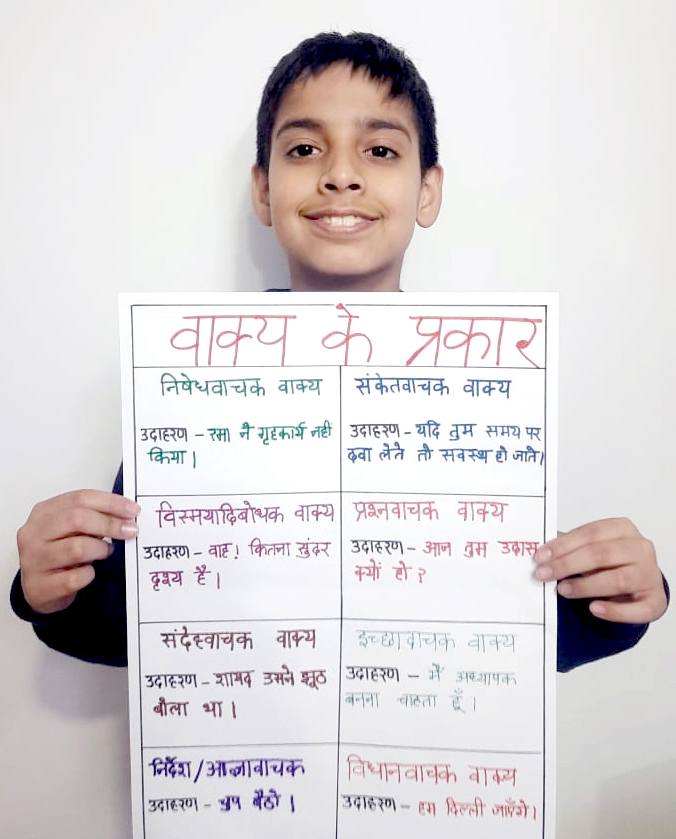 वाक्य के प्रकार
निषेधवाचक वाक्य
उदाहरण – रमा ने गृहकार्य नहीं
किया।
संकेतवाचक वाक्य
उदाहरण – यदि तुम समय पर
दवा लेते तो सवस्थ हो जाते।
विस्मयादिबोधक वाक्य
उदाहरण – वाह! कितना सुंदर
दृश्य है।
प्रश्नवाचक वाक्य
उदाहरण – आज तुम उदास
क्यों हो?
संदेहवाचक वाक्य
उदाहरण – शायद उसने झूठ
बोला था।
इच्छावाचक वाक्य
उदाहरण – मैं अध्यापक
बनना चाहता हूँ।
निर्देश/आज्ञावाचक
उदाहरण – चुप बैठो।
विधानवाचक वाक्य
उदाहरण – हम दिल्ली जाएँगे।